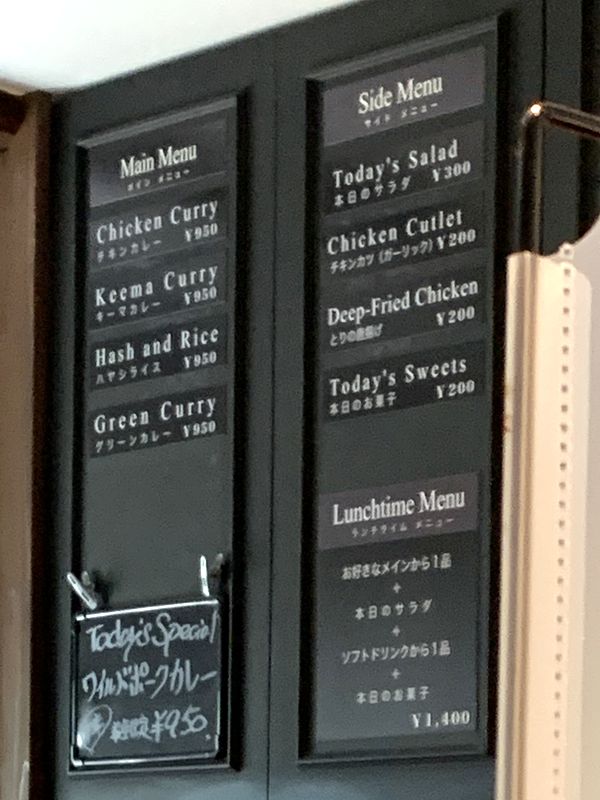 Main Menu
メイン メニュー
Chicken Curry
チキンカレー ¥950
Keema Curry
キーマカレー ¥950
Hash and Rice
ハヤシライス ¥950
Green Curry
グリーンカレー ¥950
Today's Special
ワイルドポークカレー
¥950.
Side Menu
サイド メニュー
Today's Salad
本日のサラダ ¥300
Chicken Cutlet
チキンカツ (ガーリック) ¥200
Deep-Fried Chicken
とりの唐揚げ ¥200
Today's Sweets
本日のお菓子 ¥200
Lunchtime Menu
ランチタイム メニュー
お好きなメインから1品
+
本日のサラダ
+
ソフトドリンクから1品
+
本日のお菓子
¥1,400